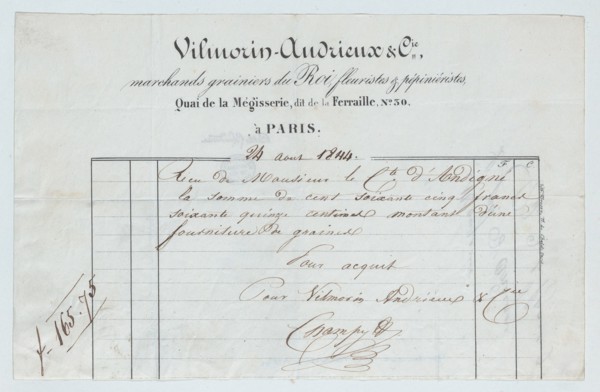 Vilmorin-Andrieux & Cie,
marchands grainiers du Roi, fleuristes & pépiniéristes,
Quai de la Mégisserie, dit de la Ferraille, No. 30.
à PARIS.
24 aout 1844.
F C
Reçu de Monsieur le Cte d'Andigné
la somme de cent soixante cinq francs
soixante quinze centimes montant d'une
fourniture de graines
Pour acquit
Pour Vilmorin Andrieux & Cie
f. 165.75